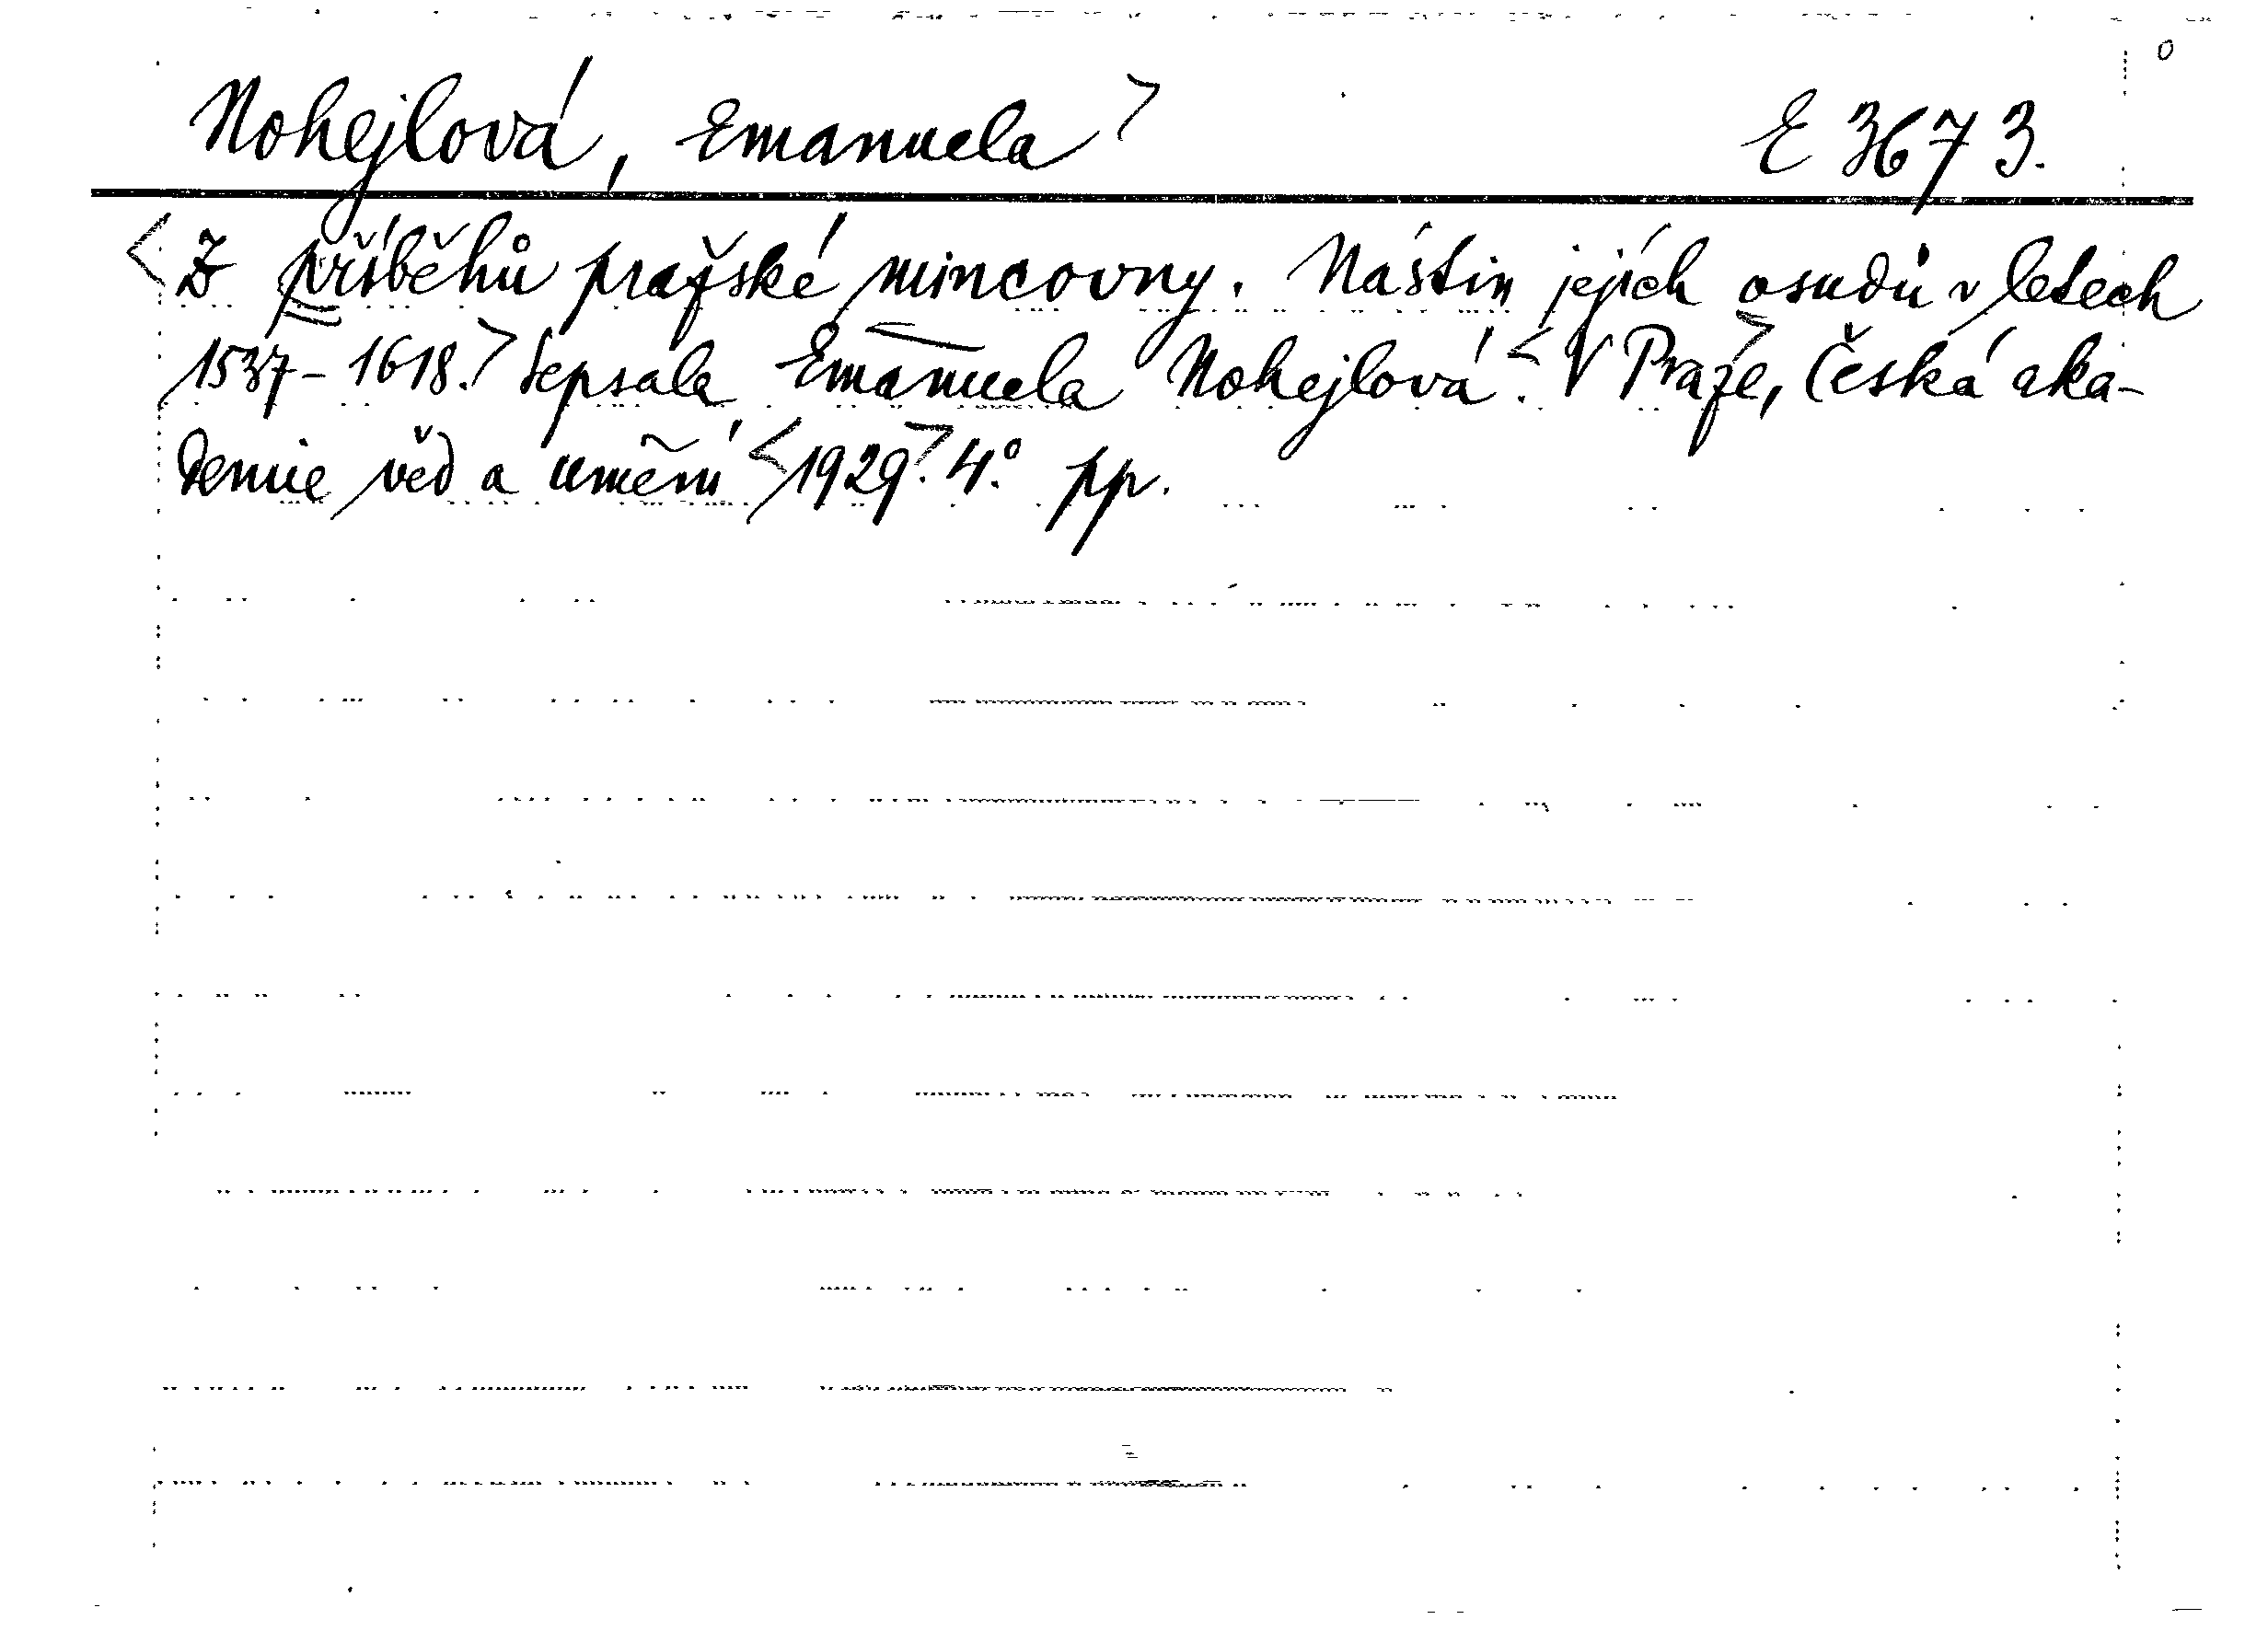 Nohejlová, Emanuela> E 3673.
<Z příběhů pražské mincovny. Nástin jejích osudů v letech
1537-1618.> Sepsala Emanuela Nohejlová.< V Praze,> Česká aka-
demie věd a umění <1929>. 4.° pp.